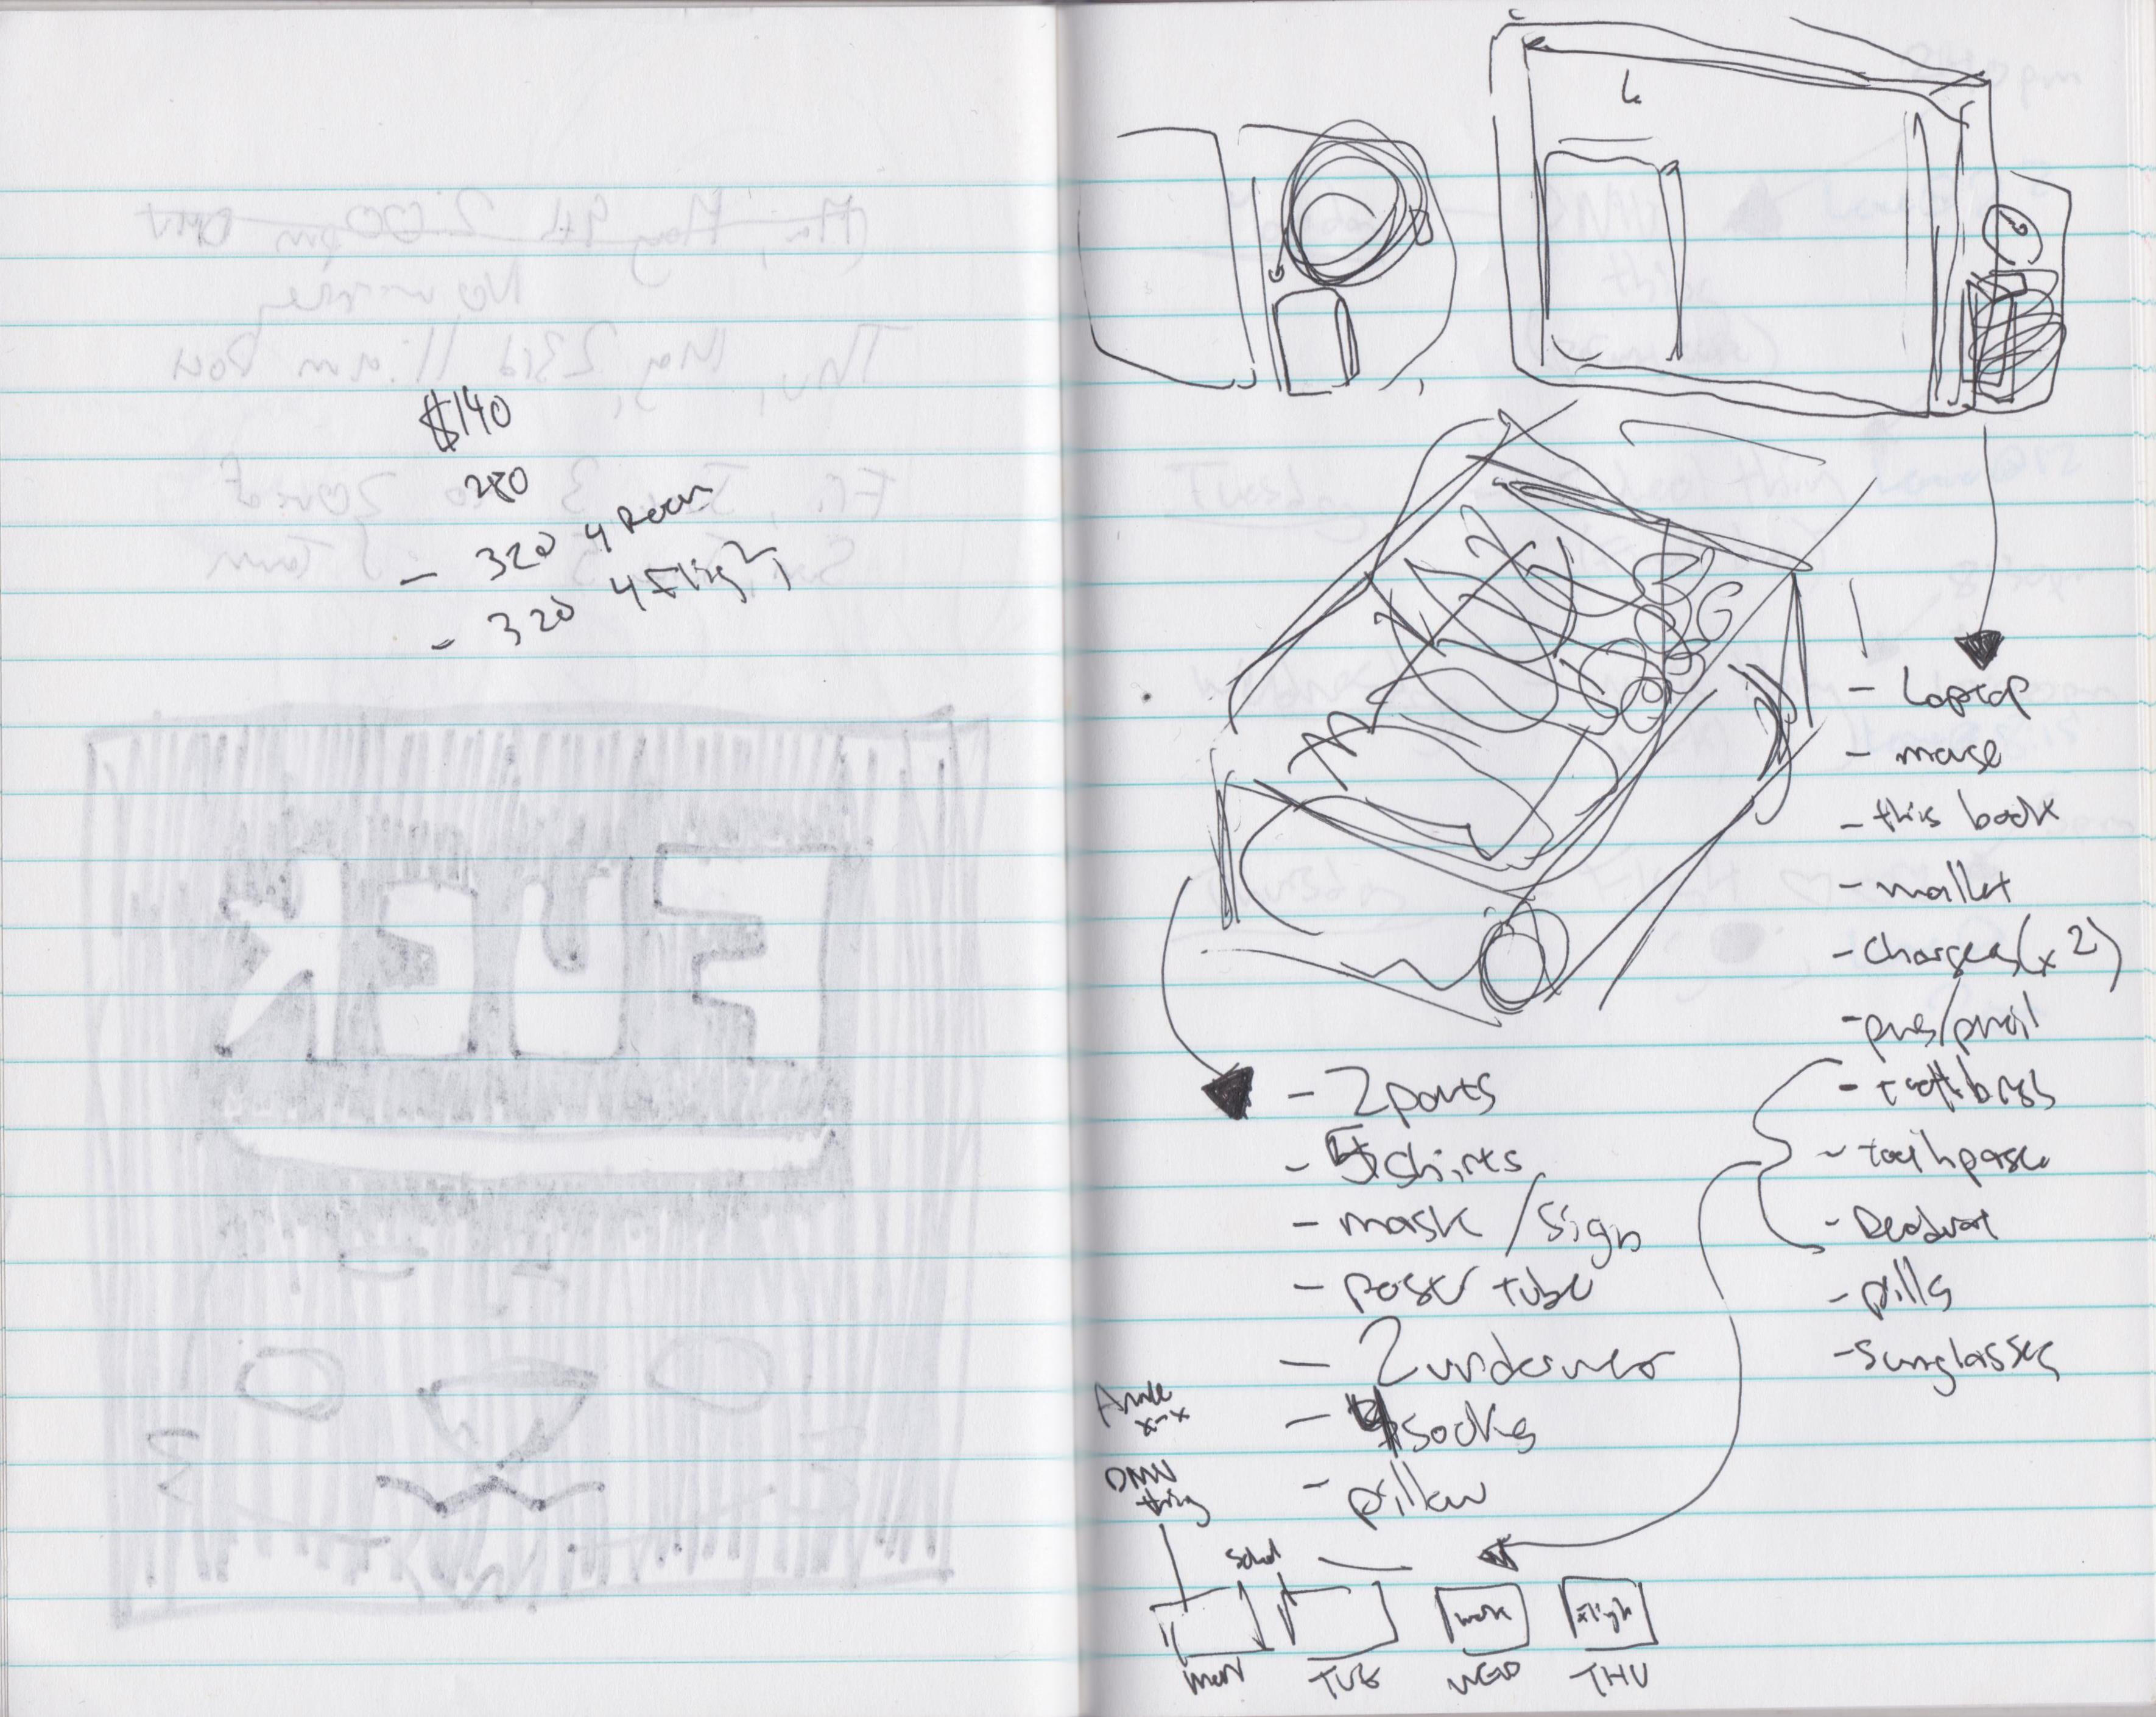 $140
280
- 320 4 Room
- 320 4 Flight
L
- Laptop
- mouse
- this book
- wallet
- chargers (x2)
- pens/pencil
- toothbrush
- toothpaste
- Deodorant
- pills
- sunglasses
- 2 pants
- 5 shirts
- mask / sign
- poster tube
- 2 underwear
- 4 socks
- pillow
x-x
DMV
thing
School
work
Flight
MON
TUE
WED
THU